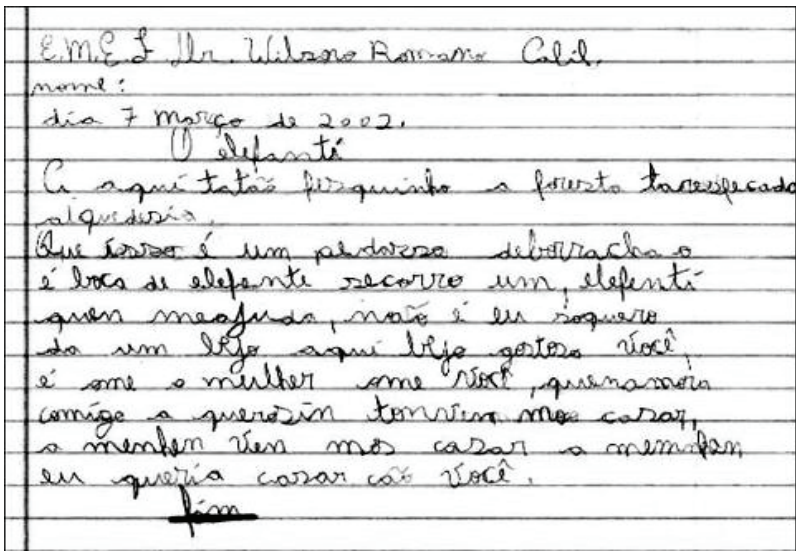 E.M.E.F Dr. Wilsono Romano Calil.
nome:
dia 7 março de 2002.
O elefanti
a aqui fresquinho a foresta
alquedisia.
Que isso é um pedosso deborracha o
é boca de elefante secorro um, elefenti
quen meajuda, não é eu soquero
da um bejo aqui bejo gostoso você,
é ome o mulher ome você, quenamora
comigo a querosin casar,
a menhen vien mos casar a memnhen
eu queria casar cão você.
fim